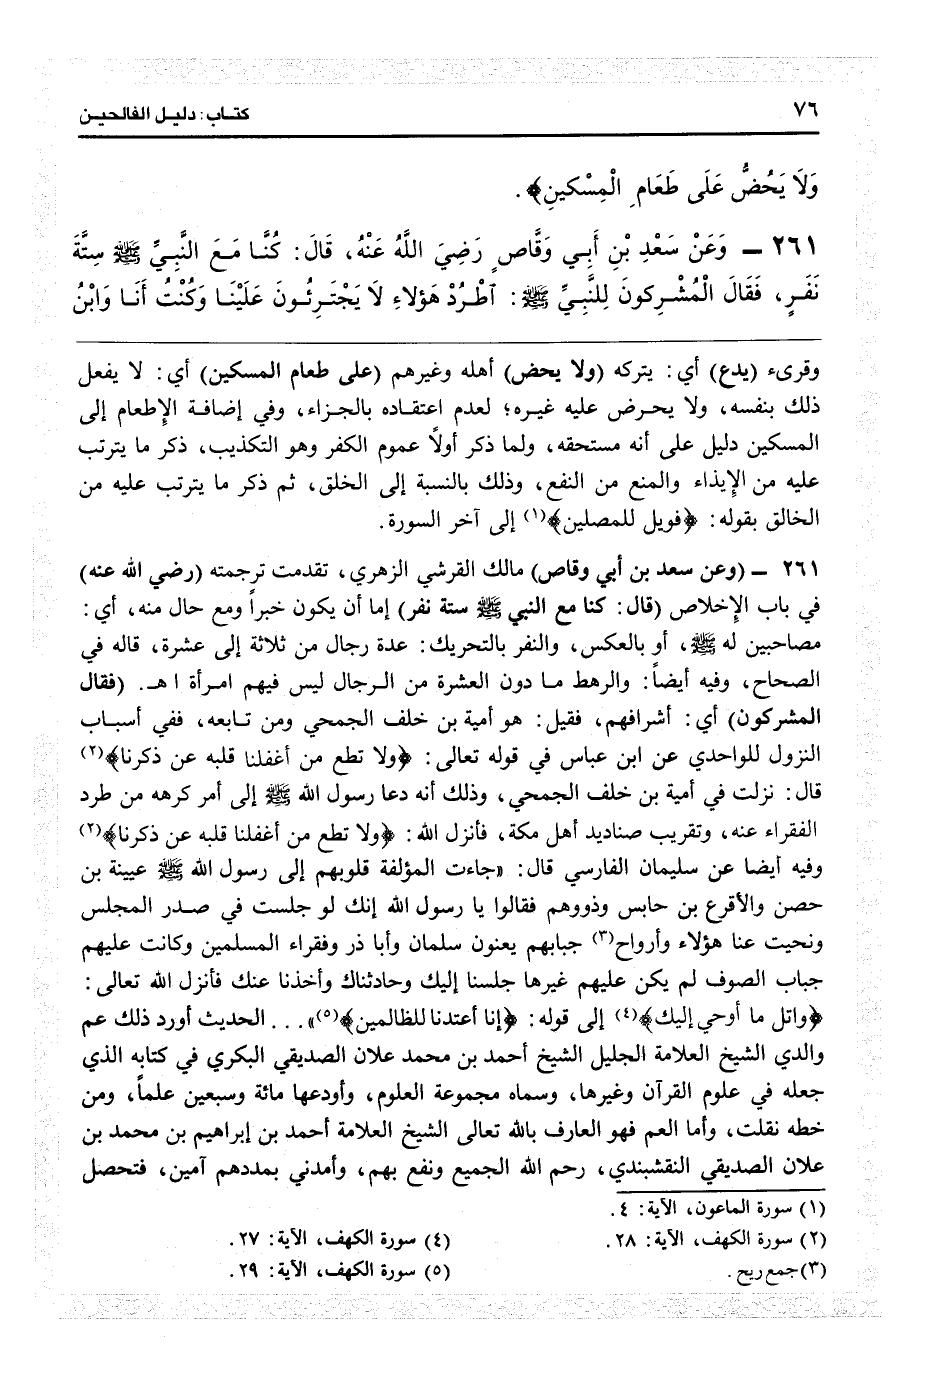 ٧٦
كتاب: دليل الفالحين
وَلَا يَحُضُّ عَلَى طَعَامِ الْمِسْكينِ﴾.
٢٦١ ـ وَعَنْ سَعْدِ بْنِ أَبِي وَقَّاصٍ رَضِيَ اللَّهُ عَنْهُ، قَالَ: كُنَّا مَعَ النَّبِيِّ ﷺ سِتَّةَ
نَفَرٍ، فَقَالَ الْمُشْرِكونَ لِلنَّبِيِّ ﷺ: اَطْرُدْ هَؤلاءِ لَا يَجْتَرِئُونَ عَلَيْنَا وَكُنْتُ أَنَا وَابْنُ
وقرىء (يدع) أي: يتركه (ولا يحض) أهله وغيرهم (على طعام المسكين) أي: لا يفعل
ذلك بنفسه، ولا يحرض عليه غيره؛ لعدم اعتقاده بالجزاء، وفي إضافة الإطعام إلى
المسكين دليل على أنه مستحقه، ولما ذكر أولاً عموم الكفر وهو التكذيب، ذكر ما يترتب
عليه من الإيذاء والمنع من النفع، وذلك بالنسبة إلى الخلق، ثم ذكر ما يترتب عليه من
الخالق بقوله: ﴿فويل للمصلين﴾(١) إلى آخر السورة.
٢٦١ ـ (وعن سعد بن أبي وقاص) مالك القرشي الزهري، تقدمت ترجمته (رضي الله عنه)
في باب الإخلاص (قال: كنا مع النبي ﷺ ستة نفر) إما أن يكون خبراً ومع حال منه، أي:
مصاحبين له ﷺ، أو بالعكس، والنفر بالتحريك: عدة رجال من ثلاثة إلى عشرة، قاله في
الصحاح، وفيه أيضاً: والرهط ما دون العشرة من الرجال ليس فيهم امرأة ا هـ. (فقال
المشركون) أي: أشرافهم، فقيل: هو أمية بن خلف الجمحي ومن تابعه، ففي أسباب
النزول للواحدي عن ابن عباس في قوله تعالى: ﴿ولا تطع من أغفلنا قلبه عن ذكرنا﴾(٢)
قال: نزلت في أمية بن خلف الجمحي، وذلك أنه دعا رسول الله ﷺ إلى أمر كرهه من طرد
الفقراء عنه، وتقريب صناديد أهل مكة، فأنزل الله: ﴿ولا تطع من أغفلنا قلبه عن ذكرنا﴾(٢)
وفيه أيضا عن سليمان الفارسي قال: «جاءت المؤلفة قلوبهم إلى رسول الله ﷺ عيينة بن
حصن والأقرع بن حابس وذووهم فقالوا يا رسول الله إنك لو جلست في صدر المجلس
ونحيت عنا هؤلاء وأرواح(٣) جبابهم يعنون سلمان وأبا ذر وفقراء المسلمين وكانت عليهم
جباب الصوف لم يكن عليهم غيرها جلسنا إليك وحادثناك وأخذنا عنك فأنزل الله تعالى:
﴿واتل ما أوحي إليك﴾(٤) إلى قوله: ﴿إنا أعتدنا للظالمين﴾(٥)»... الحديث أورد ذلك عم
والدي الشيخ العلامة الجليل الشيخ أحمد بن محمد علان الصديقي البكري في كتابه الذي
جعله في علوم القرآن وغيرها، وسماه مجموعة العلوم، وأودعها مائة وسبعين علماً، ومن
خطه نقلت، وأما العم فهو العارف بالله تعالى الشيخ العلامة أحمد بن إبراهيم بن محمد بن
علان الصديقي النقشبندي، رحم الله الجميع ونفع بهم، وأمدني بمددهم آمين، فتحصل
(١) سورة الماعون، الآية: ٤.
(٢) سورة الكهف، الآية: ٢٨.
(٣) جمع ريح.
(٤) سورة الكهف، الآية: ٢٧.
(٥) سورة الكهف، الآية: ٢٩.